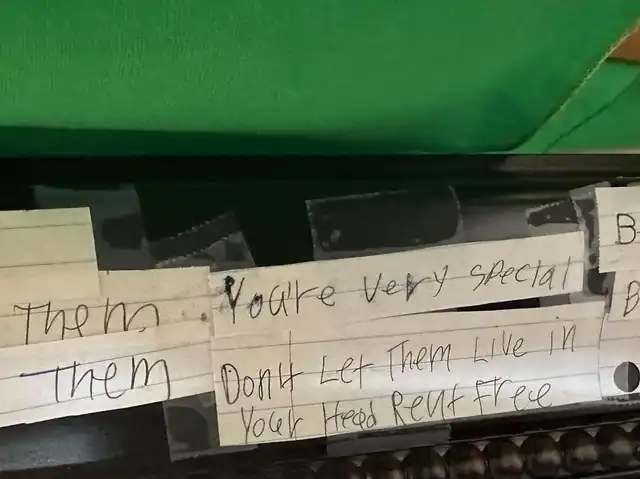 Them
You're very special
B
Them
Don't Let Them Live in
Your Head Rent Free
B